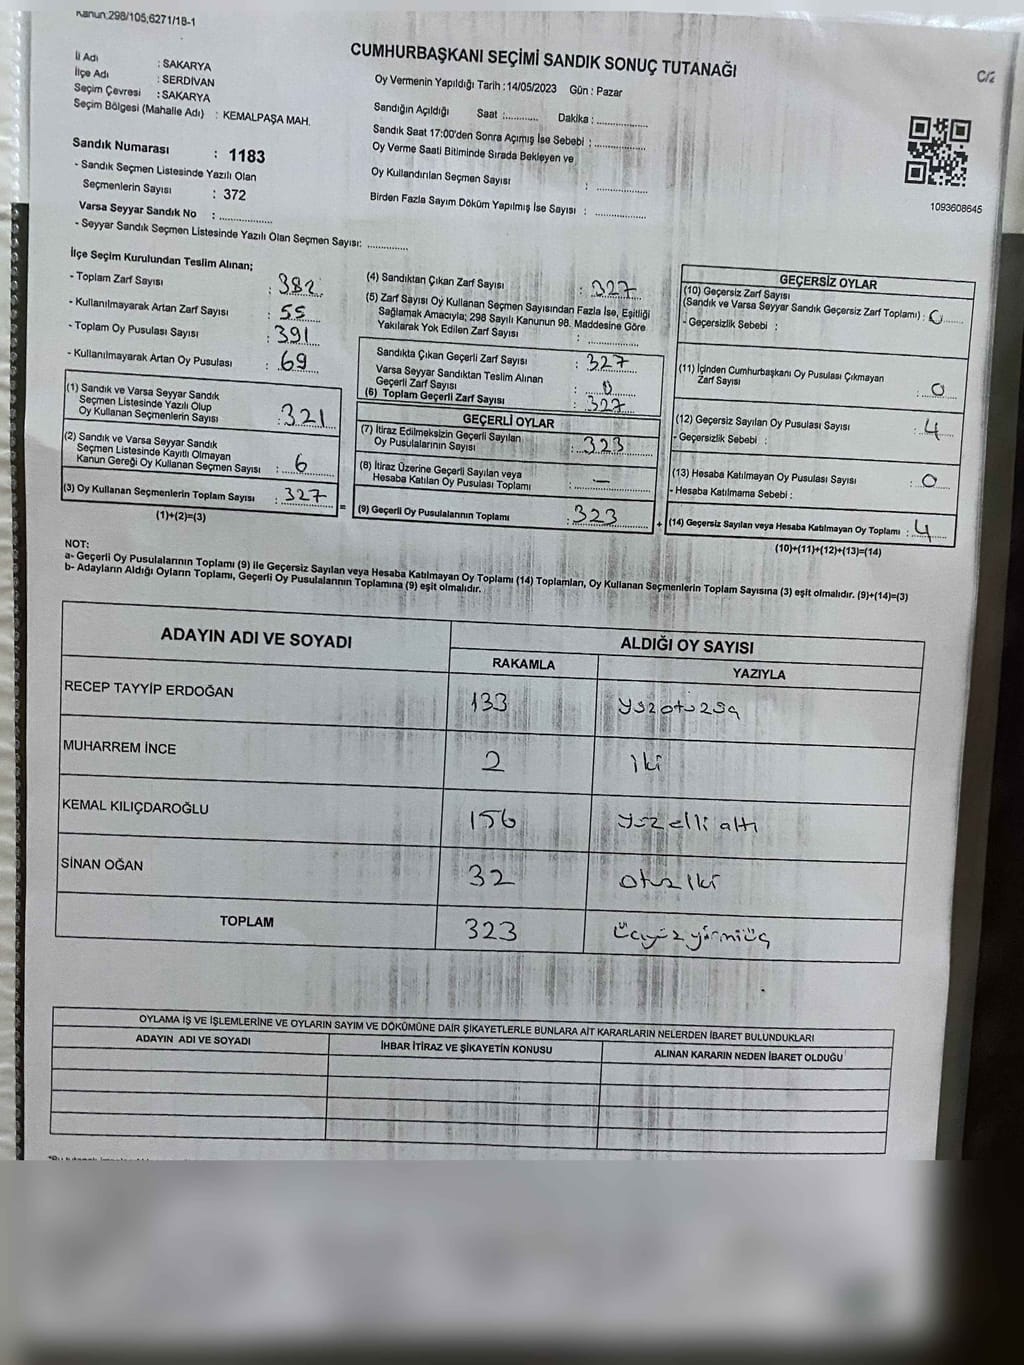 Kanun:298/105,6271/18-1
CUMHURBAŞKANI SEÇİMİ SANDIK SONUÇ TUTANAĞI
C/2
İl Adı : SAKARYA
İlçe Adı : SERDİVAN
Seçim Çevresi : SAKARYA
Seçim Bölgesi (Mahalle Adı) : KEMALPAŞA MAH.
Sandık Numarası : 1183
- Sandık Seçmen Listesinde Yazılı Olan
Seçmenlerin Sayısı : 372
Varsa Seyyar Sandık No : ................
- Seyyar Sandık Seçmen Listesinde Yazılı Olan Seçmen Sayısı: ............
Oy Vermenin Yapıldığı Tarih : 14/05/2023 Gün : Pazar
Sandığın Açıldığı Saat :.......... Dakika : ...............
Sandık Saat 17:00'den Sonra Açımış İse Sebebi : ...............
Oy Verme Saati Bitiminde Sırada Bekleyen ve
Oy Kullandırılan Seçmen Sayısı : ...............
Birden Fazla Sayım Döküm Yapılmış İse Sayısı : ...............
1093608645
İlçe Seçim Kurulundan Teslim Alınan;
- Toplam Zarf Sayısı : 382
- Kullanılmayarak Artan Zarf Sayısı : 55
- Toplam Oy Pusulası Sayısı : 391
- Kullanılmayarak Artan Oy Pusulası : 69
(1) Sandık ve Varsa Seyyar Sandık
Seçmen Listesinde Yazılı Olup
Oy Kullanan Seçmenlerin Sayısı : 321
(2) Sandık ve Varsa Seyyar Sandık
Seçmen Listesinde Kayıtlı Olmayan
Kanun Gereği Oy Kullanan Seçmen Sayısı : 6
(3) Oy Kullanan Seçmenlerin Toplam Sayısı : 327
(1)+(2)=(3)
=
(4) Sandıktan Çıkan Zarf Sayısı : 327
(5) Zarf Sayısı Oy Kullanan Seçmen Sayısından Fazla İse, Eşitliği
Sağlamak Amacıyla; 298 Sayılı Kanunun 98. Maddesine Göre
Yakılarak Yok Edilen Zarf Sayısı : ...............
Sandıkta Çıkan Geçerli Zarf Sayısı : 327
Varsa Seyyar Sandıktan Teslim Alınan
Geçerli Zarf Sayısı : 0
(6) Toplam Geçerli Zarf Sayısı : 327
GEÇERLİ OYLAR
(7) İtiraz Edilmeksizin Geçerli Sayılan
Oy Pusulalarının Sayısı : 323
(8) İtiraz Üzerine Geçerli Sayılan veya
Hesaba Katılan Oy Pusulası Toplamı : —
(9) Geçerli Oy Pusulalarının Toplamı : 323
+
GEÇERSİZ OYLAR
(10) Geçersiz Zarf Sayısı
(Sandık ve Varsa Seyyar Sandık Geçersiz Zarf Toplamı) : 0
- Geçersizlik Sebebi :
(11) İçinden Cumhurbaşkanı Oy Pusulası Çıkmayan
Zarf Sayısı : 0
(12) Geçersiz Sayılan Oy Pusulası Sayısı : 4
- Geçersizlik Sebebi :
(13) Hesaba Katılmayan Oy Pusulası Sayısı : 0
- Hesaba Katılmama Sebebi :
(14) Geçersiz Sayılan veya Hesaba Katılmayan Oy Toplamı : 4
(10)+(11)+(12)+(13)=(14)
NOT:
a- Geçerli Oy Pusulalarının Toplamı (9) ile Geçersiz Sayılan veya Hesaba Katılmayan Oy Toplamı (14) Toplamları, Oy Kullanan Seçmenlerin Toplam Sayısına (3) eşit olmalıdır. (9)+(14)=(3)
b- Adayların Aldığı Oyların Toplamı, Geçerli Oy Pusulalarının Toplamına (9) eşit olmalıdır.
ADAYIN ADI VE SOYADI ALDIĞI OY SAYISI
RAKAMLA YAZIYLA
RECEP TAYYİP ERDOĞAN 133
MUHARREM İNCE 2 iki
KEMAL KILIÇDAROĞLU 156 yüz elli altı
SİNAN OĞAN 32 otuziki
TOPLAM 323 üçyüzyirmiüç
OYLAMA İŞ VE İŞLEMLERİNE VE OYLARIN SAYIM VE DÖKÜMÜNE DAİR ŞİKAYETLERLE BUNLARA AİT KARARLARIN NELERDEN İBARET BULUNDUKLARI
ADAYIN ADI VE SOYADI İHBAR İTİRAZ VE ŞİKAYETİN KONUSU ALINAN KARARIN NEDEN İBARET OLDUĞU